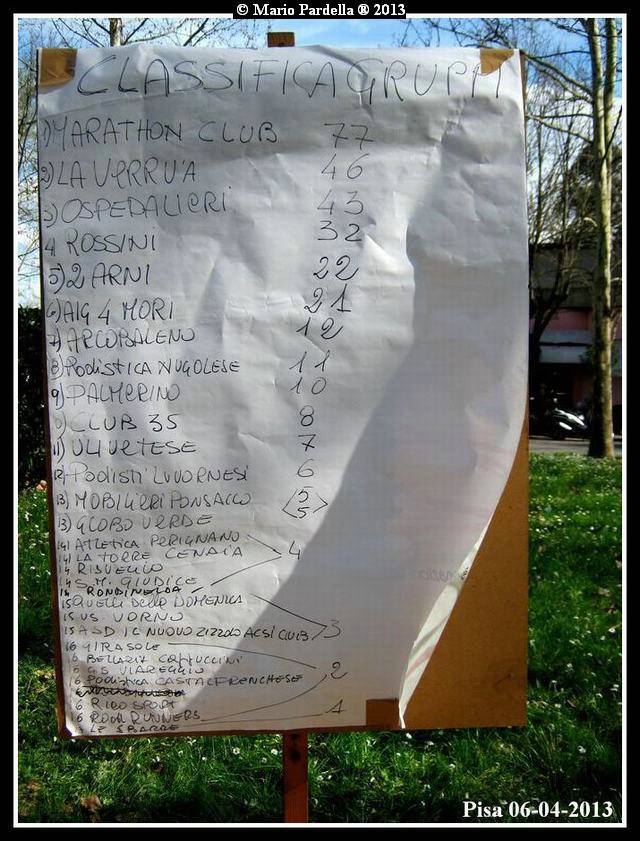 © Mario Pardella ® 2013
CLASSIFICA GRUPPI
1) MARATHON CLUB 77
2) LA VERRU'A 46
3) OSPEDALIERI 43
4 ROSSINI 32
5) 2 ARNI 22
6) AIG 4 MORI 21
7) ARCOBALENO 12
8) PODISTICA NUGOLESE 11
9) PALMERINO 10
0) CLUB 35 8
11) ULIVETESE 7
12) PODISTI LIVORNESI 6
13) MOBILIERI PONSACCO 5
13) GLOBO VERDE 5
14) ATLETICA PERIGNANO
14) LA TORRE CENAIA 4
14 RISVEGLIO
14 S.M. GIUDICE
14 RONDINELLA
15 QUELLI DELLA DOMENICA
15 US. VORNO
15 ASD IL NUOVO ZIZZOLO ACSI CLUB 3
16 GIRASOLE
16 BELLARIA CAPPUCCINI
16 G.S. VIAREGGIO 2
16 PODISTICA CASTALFRENCHESE
16 RICO SPORT
16 ROAD RUNNERS 1
LE SBARRE
Pisa 06-04-2013